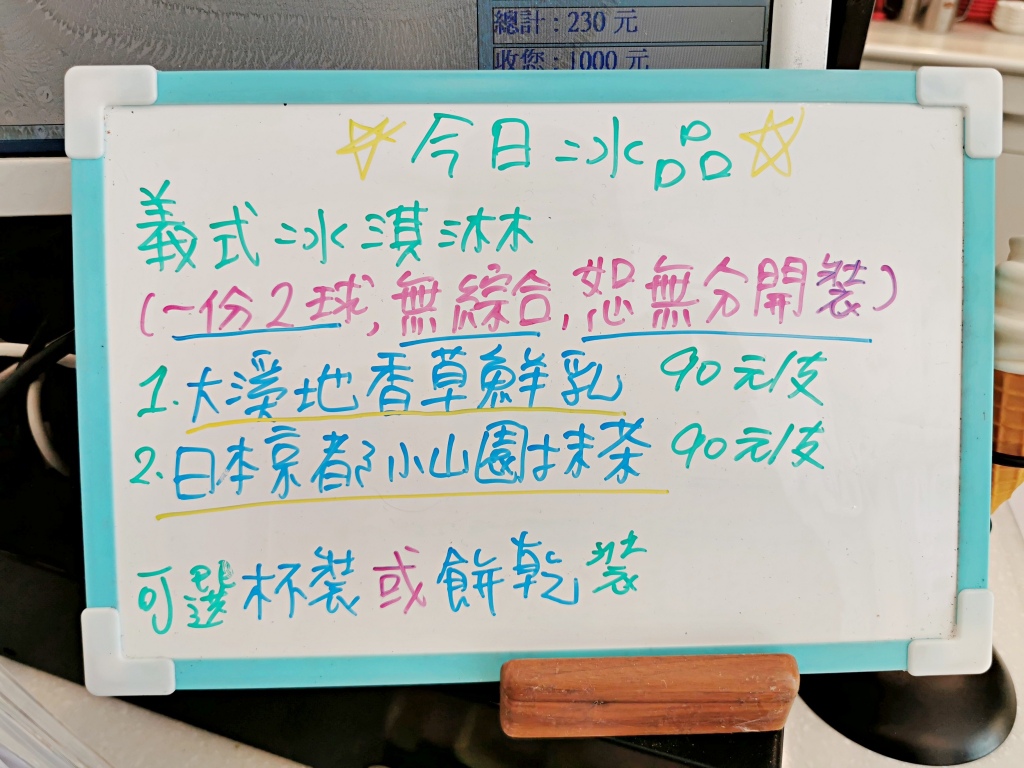 總計：230 元
收您：1000 元
今日冰品
義式冰淇淋
(一份2球,無綜合,恕無分開裝)
1.大溪地香草鮮乳 90元/支
2.日本京都小山園抹茶 90元/支
可選杯裝或餅乾裝